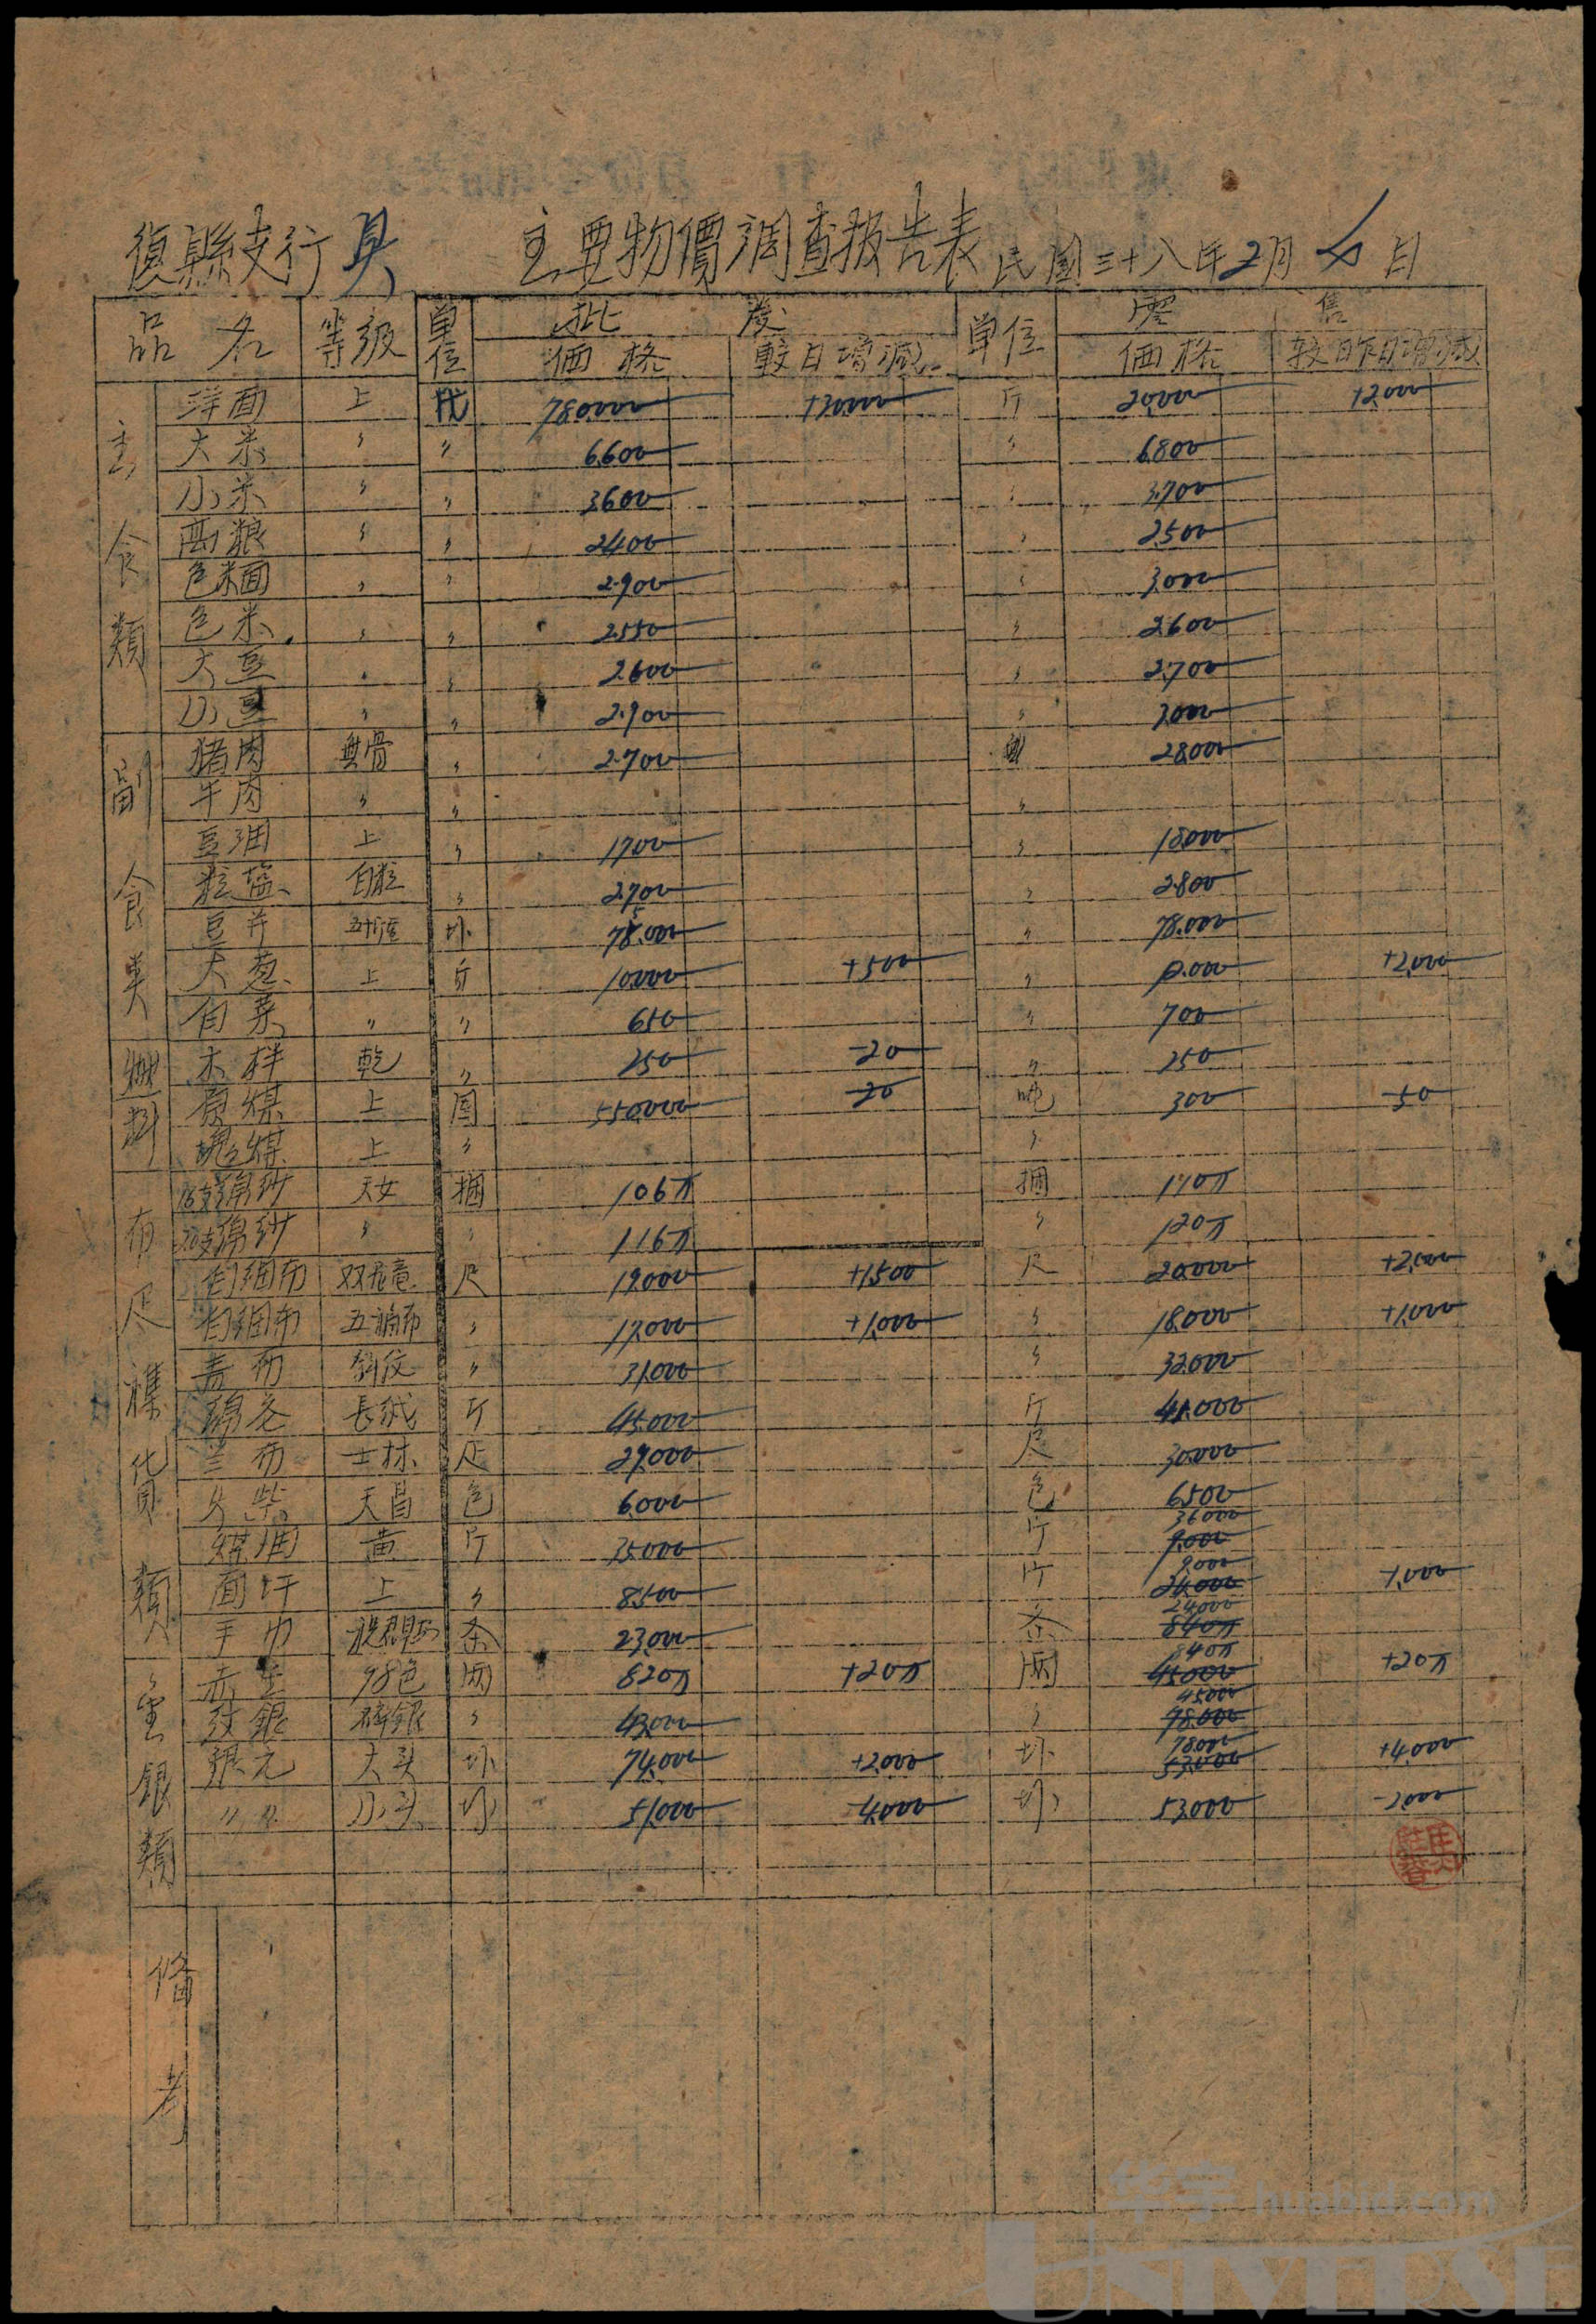 復縣支行 主要物價調查报告表 民國三十八年2月 日
品名 等級 単位 批發 単位 零售
価格 較日增減 価格 較昨日增减
主食類
洋面 上 代 780.000 +30.000 斤 20.000 +2.000
大米 〃 〃 6.600 〃 6.800
小米 〃 〃 3.600 〃 3.700
高粮 〃 〃 2.400 〃 2.500
包米面 〃 〃 2.900 〃 3.000
包米 〃 〃 2.550 〃 2.600
大豆 〃 〃 2.600 〃 2.700
小豆 〃 〃 2.900 〃 3.000
副食美
猪肉 無骨 〃 2.700 28.000
牛肉 〃 〃 〃
豆油 上 〃 1700 〃 18.000
粒塩 白粒 〃 2.700 〃 2.800
豆并 圤 78.000 〃 78.000
大葱 上 斤 10.000 +500 〃 +2.000
白菜 〃 〃 650 〃 700
燃料
木柈 乾 〃 250 -20 〃 250
原煤 上 550.000 -20 吨 300 -50
塊煤 上 〃 〃
布疋襍貨類
16支綿纱 天女 捆 106万 捆 110万
20支綿纱 〃 〃 116万 〃 120万
白细布 双龙 尺 19.000 +1.500 尺 20.000 +2.000
白细布 五福布 〃 17.000 +1.000 〃 18.000 +1.000
青布 斜纹 〃 31.000 〃 32.000
綿花 長绒 斤 45.000 斤
兰布 士林 尺 29.000 尺 30.000
火柴 天昌 包 6.000 包 6.500
煤油 黄 斤 35.000 斤 36.000 9.000
面圩 上 〃 8.500 斤 9.000 24.000 -1.000
手巾 条 23.000 条 24.000 840万
金銀類
赤金 98色 両 820万 +20万 两 840万 45.000 +20万
纹銀 碎銀 〃 43.000 〃 45.000 78.000
银元 大头 圤 74.000 +2.000 圤 78.000 53.000 +4.000
〃 〃 小头 圤 51.000 -4.000 圤 53.000 -2.000
俻考
华宇 huabid.com
UNIVERSE